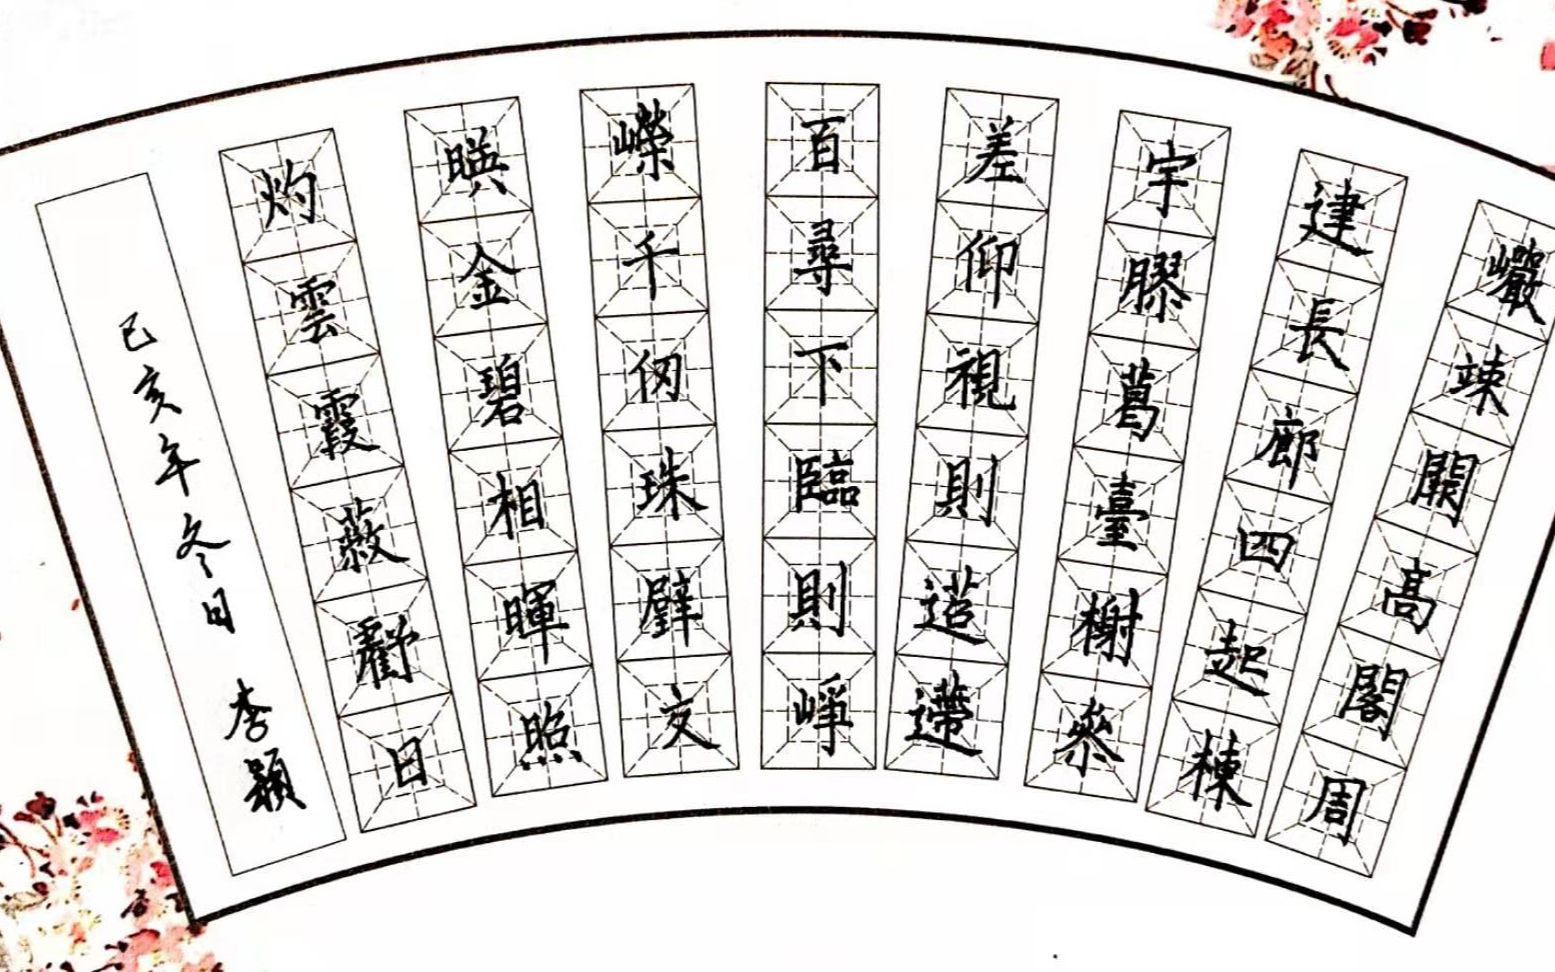 巖竦闕高閣周
建長廊四起棟
宇膠葛臺榭參
差仰視則迢遰
百尋下臨則崢
嶸千仞珠璧交
暎金碧相暉照
灼雲霞蔽虧日
己亥年冬日 李穎